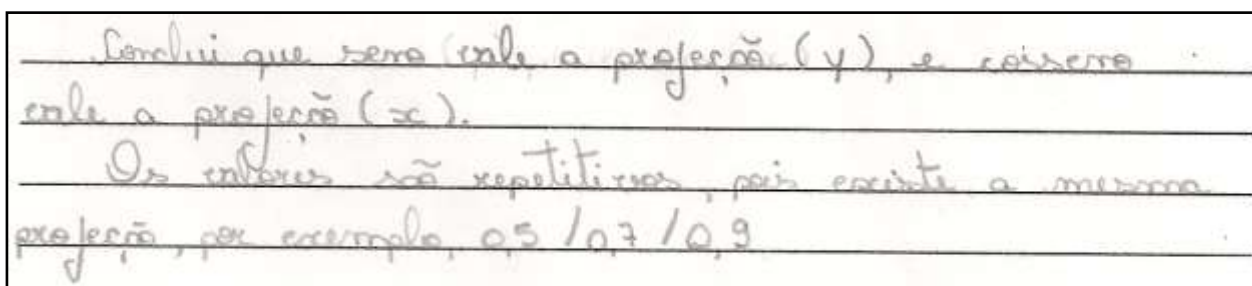 Conclui que seno vale a projeção (y), e cosseno
vale a projeção (x).
Os valores são repetitivos, pois existe a mesma
projeção, por exemplo, 0,5 / 0,7 / 0,9